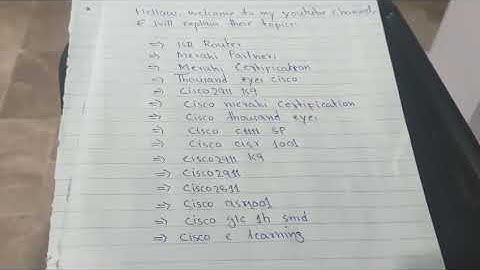 Hellow, welcome to my youtube channel,
& I will explain their topics:
=> ISR Router
=> Meraki Partners
=> Meraki Certification
=> Thousand eyes cisco
=> Cisco2911 K9
=> Cisco meraki Certification
=> Cisco thousand eyes
=> Cisco c1111 8P
=> Cisco cisr 1001
=> Cisco2911 K9
=> Cisco2911
=> Cisco2811
=> Cisco asr1001
=> Cisco glc lh smd
=> Cisco e learning